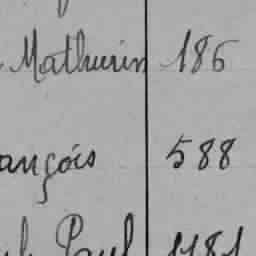 Mathurin 186
ançois 588
Paul 1181